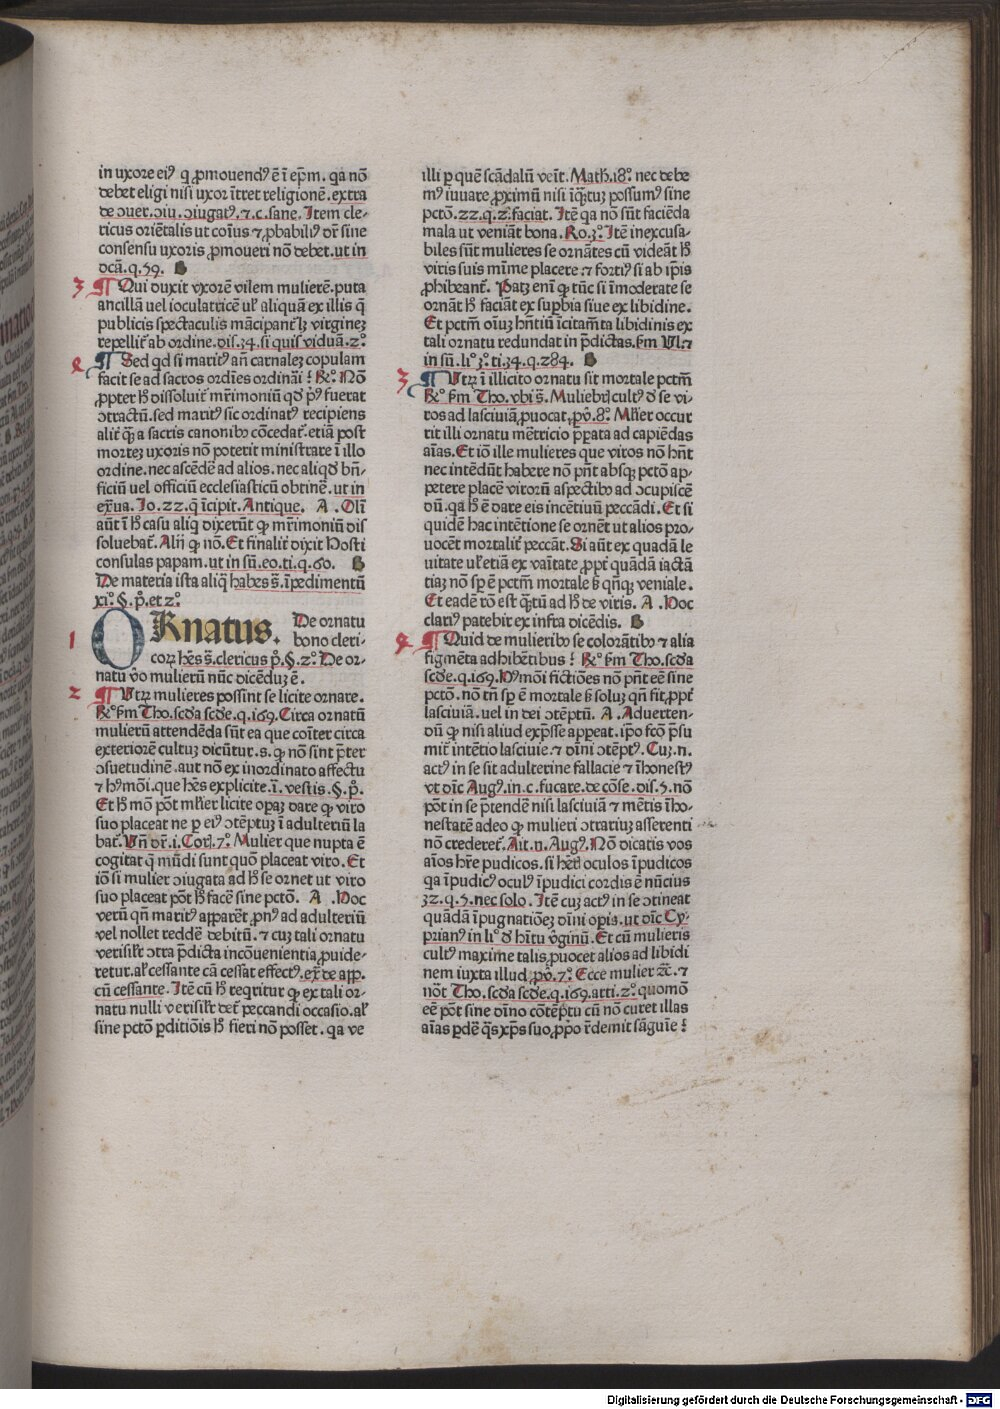 in uxore eiꝰ q ꝓmouendꝰ ē ī ep̄m. qa nō
debet eligi nisi uxor ītret religionē. extra
de ↄuer. ↄiu. ↄiugatꝰ. ⁊. c. sane. Item cle-
ricus oriētalis ut coīus ⁊ ꝓbabiliꝰ dr̄ sine
consensu uxoris ꝓmoueri nō debet. ut in
dcā. q. 59. B
3 ¶ Qui duxit vxorē vilem mulierē. puta
ancillā uel ioculatricē ul̛ aliquā ex illis q̄
publicis spectaculis mācipant̄ lꝫ virginez
repellit̄ ab ordine. dis. 34. si quis viduā. 2º
4 ¶ Sed qd si maritꝰ an̄ carnalez copulam
facit se ad sacros ordīes ordināi? Rº. Nō
ꝓpter h̄ dissoluit̄ mr̄imoniū qd̛ pꝰ fuerat
ↄtractū. sed maritꝰ sic ordinatꝰ recipiens
alit̄ qꝫ̄a sacris canonibꝰ cōcedat̄. etiā post
mortez uxoris nō poterit ministrare ī illo
ordine. nec ascēdē ad alios. nec aliqd̛ bn̄-
ficiū uel officiū ecclesiasticū obtinē. ut in
ex̄ua. Io. 22. q īcipit. Antique. A. Olī
aūt ī h̄ casu aliq dixerūt ꝙ mr̄imoniū dis
soluebat̄. Alij ꝙ nō. Et finalit̄ dixit Hosti
consulas papam. ut in sū. eo. ti. q. 60. B
De materia ista aliq̄ habes s̄. īpedimentū
xiº. §. pº. et 2º
1 ORnatus. De ornatu
bono cleri-
coꝝ hēs s̄. clericus pº. §. 2º. De or-
natu v̄o mulierū nūc dicēduz ē.
2 ¶ Vtꝝ mulieres possint se licite ornare.
Rº ẜm Tho. scda scde. q. 169. Circa ornatū
mulierū attendēda sūt ea que coīter circa
exteriorē cultuz dicūtur. s. ꝙ nō sint p̄ter
ↄsuetudinē. aut nō ex inordinato affectu
⁊ hꝰmōi. que hēs explicite. ī. vestis. §. pº.
Et h̄ mō pōt mlier licite opaz dare ꝙ viro
suo placeat ne ꝑ eiꝰ ↄtēptuz ī adulteriū la
bat̄. Vn̄ dr̄. i. Cor. 7º. Mulier que nupta ē
cogitat q̄ mūdi sunt quō placeat viro. Et
iō si mulier ↄiugata ad h̄ se ornet ut viro
suo placeat pōt h̄ facē sine pctō. A. Hoc
verū qn̄ maritꝰ apparēt̄ ꝓnꝰ ad adulteriū
vel nollet reddē debitū. ⁊ cuz tali ornatu
verisilr̄ ↄtra p̄dicta incōuenientia ꝓuide-
retur. al̛ cessante cā cessat effectꝰ. ex̄ de app.
cū cessante. Itē cū h̄ reqritur ꝙ ex tali or-
natu nulli verisilr̄ det̄ peccandi occasio. al̛
sine pctō ꝑditiōis h̄ fieri nō posset. qa ve
illi ꝑ quē scādalū veīt. Math. 18º. nec debe
mꝰ iuuare ꝓximū nisi īqꝫtuꝫ possumꝰ sine
pctō. 22. q. 2º. faciat. Itē qa nō sūt faciēda
mala ut veniāt bona. Ro. 3º. Itē inexcusa-
biles sūt mulieres se ornātes cū videāt h̄
viris suis mīme placere ⁊ fortiꝰ si ab ip̄is
ꝓhibeant̄. Patꝫ enī ꝙ tūc si īmoderate se
ornāt h̄ faciāt ex supbia siue ex libidine.
Et pctm̄ oīuꝫ hn̄tiū īcitam̄ta libidinis ex
tali ornatu redundat in p̄dictas. ẜm Vl. ⁊
in sū. liº 3º. ti. 34. q. 284. B
3 ¶ Vtꝝ ī illicito ornatu sit mortale pctm̄
Rº ẜm Tho. vbi s̄. Muliebrꝰ cultꝰ d̛ se vi-
ros ad lasciuiā ꝓuocat. ꝓvº. 8º. Mlier occur
rit illi ornatu mēricio p̄pata ad capiēdas
aīas. Et iō ille mulieres que viros nō hn̄t
nec intēdūt habere nō pn̄t absqꝫ pctō ap-
petere placē virorū aspectibꝰ ad ↄcupiscē
dū. qa h̄ ē dare eis incētiuū peccādi. Et si
quidē hac intētione se ornēt ut alios pro-
uocēt mortalit̄ peccāt. Si aūt ex quadā le
uitate ul̛ etiā ex vaītate ꝓpt̄ quādā iactā
tiaꝫ nō sꝑ ē pctm̄ mortale ß qn̄qꝫ veniale.
Et eadē rō est qꝫtū ad h̄ de viris. A. Hoc
clariꝰ patebit ex infra dicēdis. B
4 ¶ Quid de mulieribꝰ se colorātibꝰ ⁊ alia
figmēta adhibētibus? Rº ẜm Tho. scda
scde. q. 169. Hꝰmōi fictiōes nō pn̄t eē sine
pctō. nō tn̄ sꝑ ē mortale ß soluꝫ qn̄ fit ꝓpt̄
lasciuiā. uel in dei ↄtēptū. A. Aduerten-
dū ꝙ nisi aliud exp̄sse appeat. ip̄o fc̄o p̄su
mit̄ intētio lasciuie. ⁊ dīni ↄtēptꝰ. Cuꝫ. n.
actꝰ in se sit adulterine fallacie ⁊ īhonestꝰ
vt dīc Augꝰ. in. c. fucare. de cōse. dis. 5. nō
pōt in se p̄tendē nisi lasciuiā ⁊ mētis īho-
nestatē adeo ꝙ mulieri ↄtrariuꝫ asserenti
nō crederet̄. Ait. n. Augꝰ. Nō dicatis vos
aīos hr̄e pudicos. si hētꝰ oculos īpudicos
qa īpudicꝰ oculꝰ īpudici cordis ē nūcius
32. q. 5. nec solo. Itē cuꝫ actꝰ in se ↄtineat
quādā īpugnatiōeꝫ dīni opis. ut dīc Cy-
prianꝰ in liº d̛ hītu v̄ginū. Et cū mulieris
cultꝰ maxime talis ꝓuocet alios ad libidi
nem iuxta illud ꝓvº. 7º. Ecce mulier ⁊c̄. ⁊
nōt Tho. scda scde. q. 169. arti. 2º. quomō
eē pōt sine dīno cōtēptu cū nō curet illas
aīas ꝑdē q̄s xp̄s suo ꝓp̄o r̄demit sāguīe?
Digitalisierung gefördert durch die Deutsche Forschungsgemeinschaft - DFG